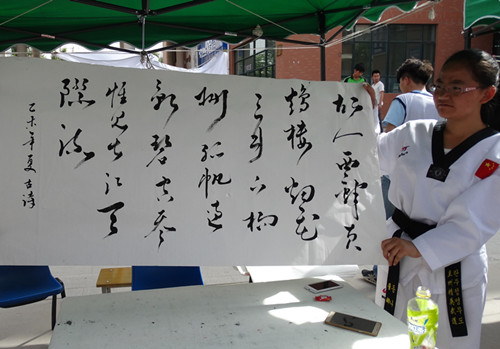 故人西辞黄
鹤楼烟花
三月下扬
州孤帆远
影碧空尽
惟见长江天
际流
乙未年夏古诗